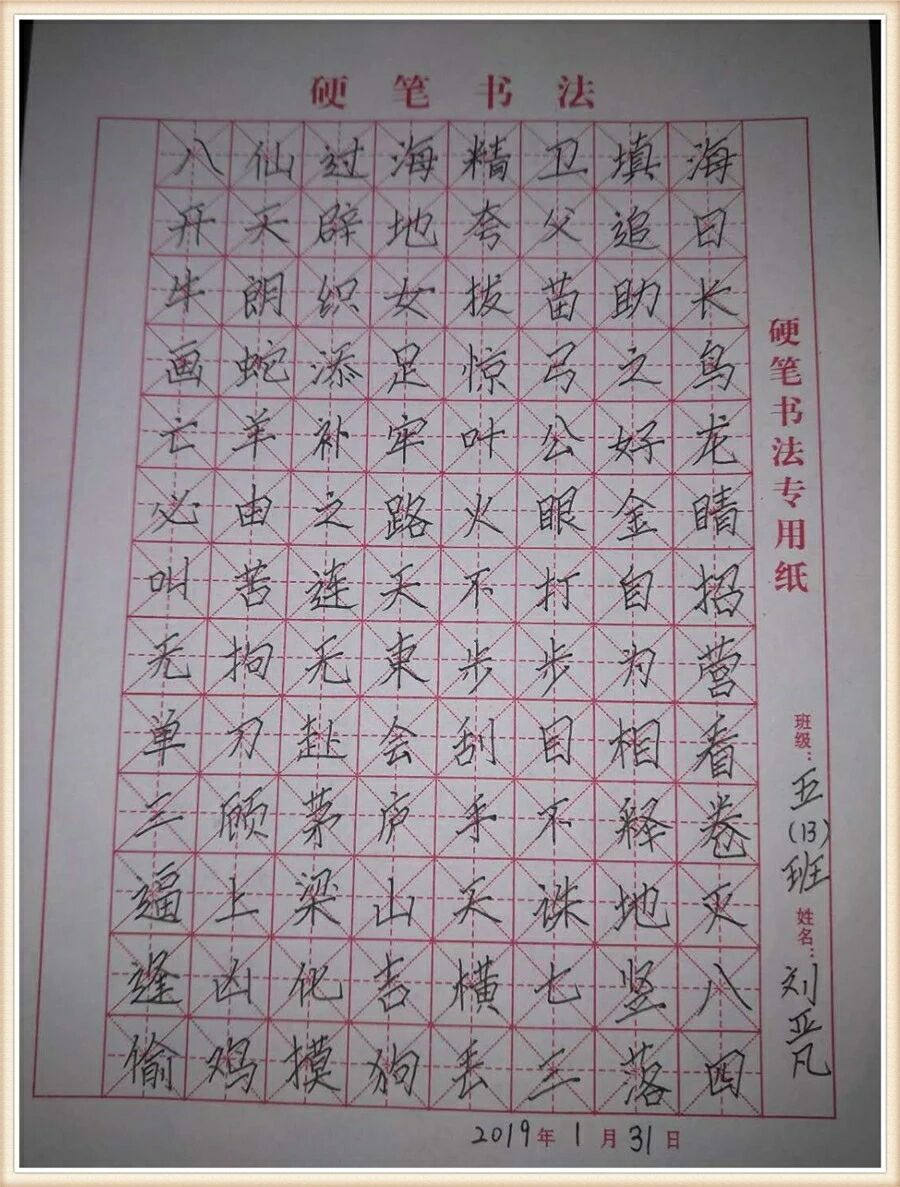 硬笔书法
八仙过海精卫填海
开天辟地夸父追日
牛朗织女拔苗助长
画蛇添足惊弓之鸟
亡羊补牢叶公好龙
必由之路火眼金睛
叫苦连天不打自招
无拘无束步步为营
单刀赴会刮目相看
三顾茅庐手不释卷
逼上梁山天诛地灭
逢凶化吉横七竖八
偷鸡摸狗丢三落四
硬笔书法专用纸
班级：五(13)班
姓名：刘亚凡
2019年1月31日